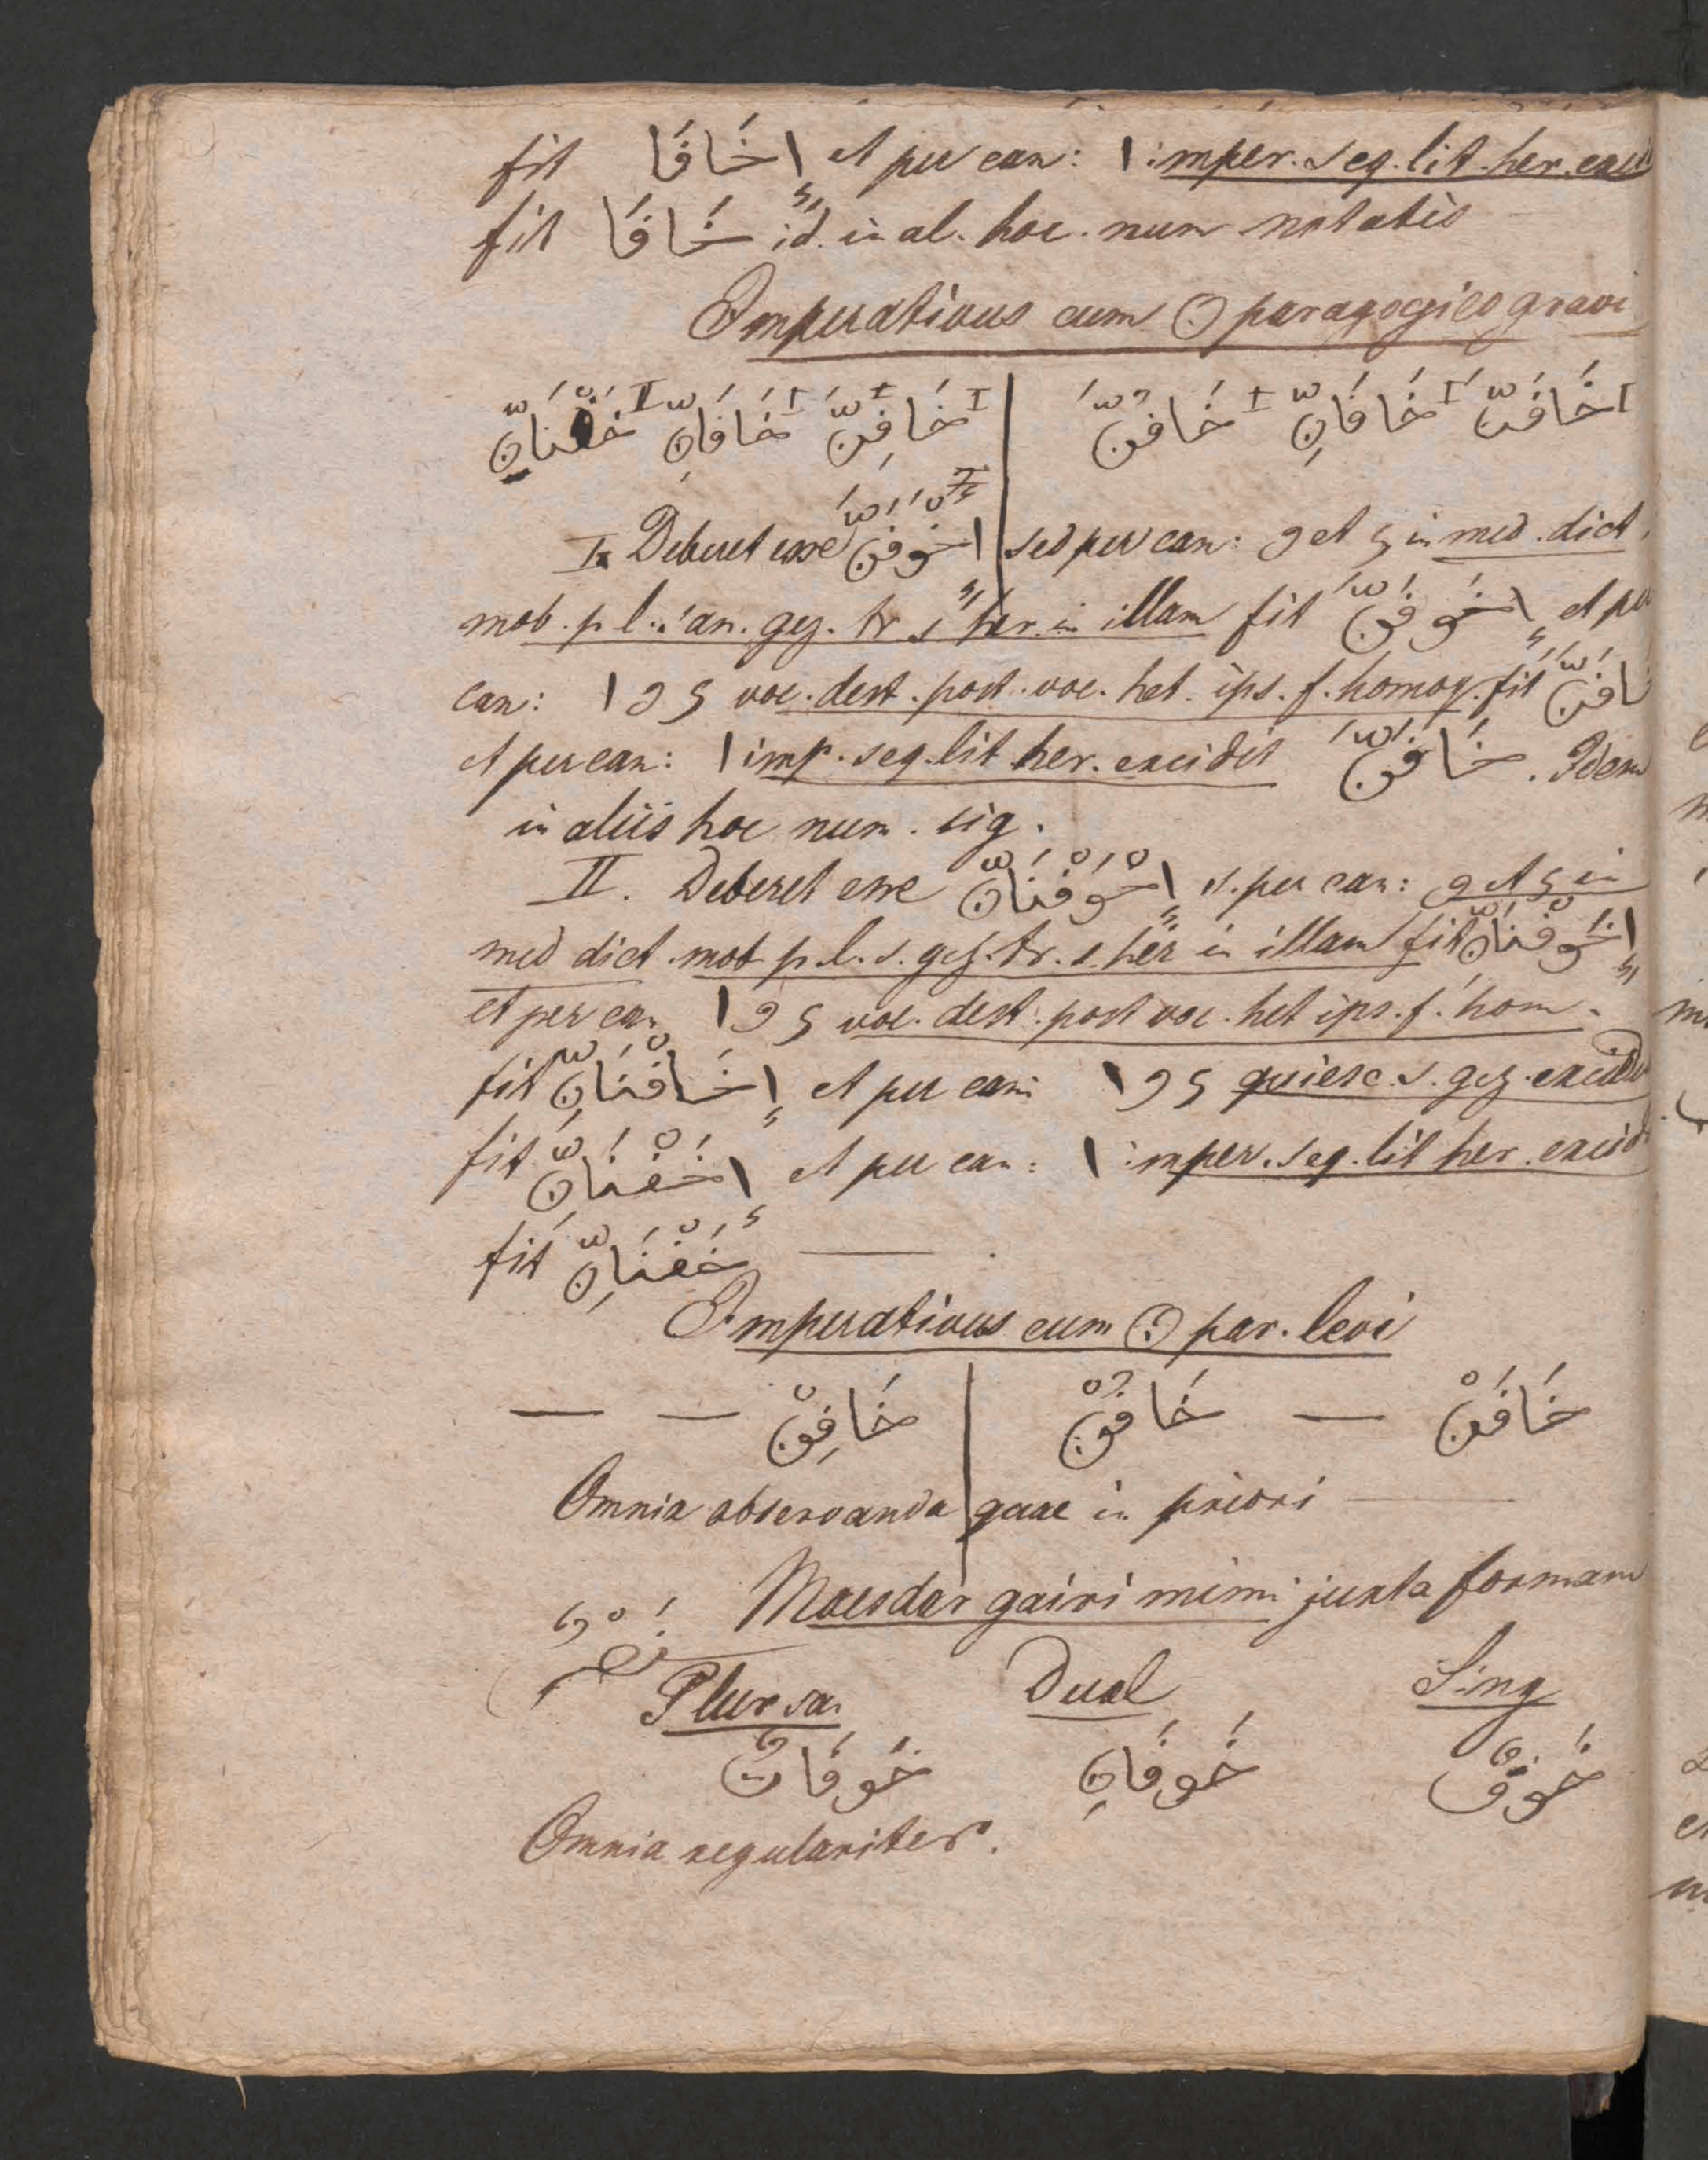 fit إخَافَا et per can: ا imper. seq. lit. her. exci
fit خَافَا id. in al. hoc. num notatis
Imperativus cum ن paragogico gravi
I خَافَنَّ I خَافَانِّ I خَافُنَّ | I خَافِنَّ I خَافَانِّ II خَفْنَانِّ
I. Deberet esse اِخْوَفَنَّ sed per can: و et ى in med. dict.
mob. p. l. san. gez. tr. s. her. in illam fit اِخَوْفَنَّ et per
can: ا و ى voc. dest. post. voc. het. ips. f. homog. fit خَافَنَّ
et per can: ا imp. seq. lit. her. excidit خَافَنَّ . Idem
in aliis hoc num. sig.
II. Deberet esse اِخْوَفْنَانِّ s. per can: و et ى in
med dict. mob p. l. s. gez. tr. s. her in illam fit اِخَوْفْنَانِّ
et per can ا و ى voc. dest. post voc. het ips. f. hom.
fit اِخَافْنَانِّ et per can: ا و ى quiesc. s. gez. excid
fit اِخَفْنَانِّ et per can: ا imper. seq. lit her. excid
fit خَفْنَانِّ — .
Imperativus cum ن par. levi
خَافَنْ — خَافُنْ | خَافِنْ — —
Omnia observanda quae in priori —
Maesdar gairi mimi juxta formam
نَصْرٌ
Sing Dual Plur sa.
خَوْفٌ خَوْفَانِ خَوْفَاتٌ
Omnia regulariter.